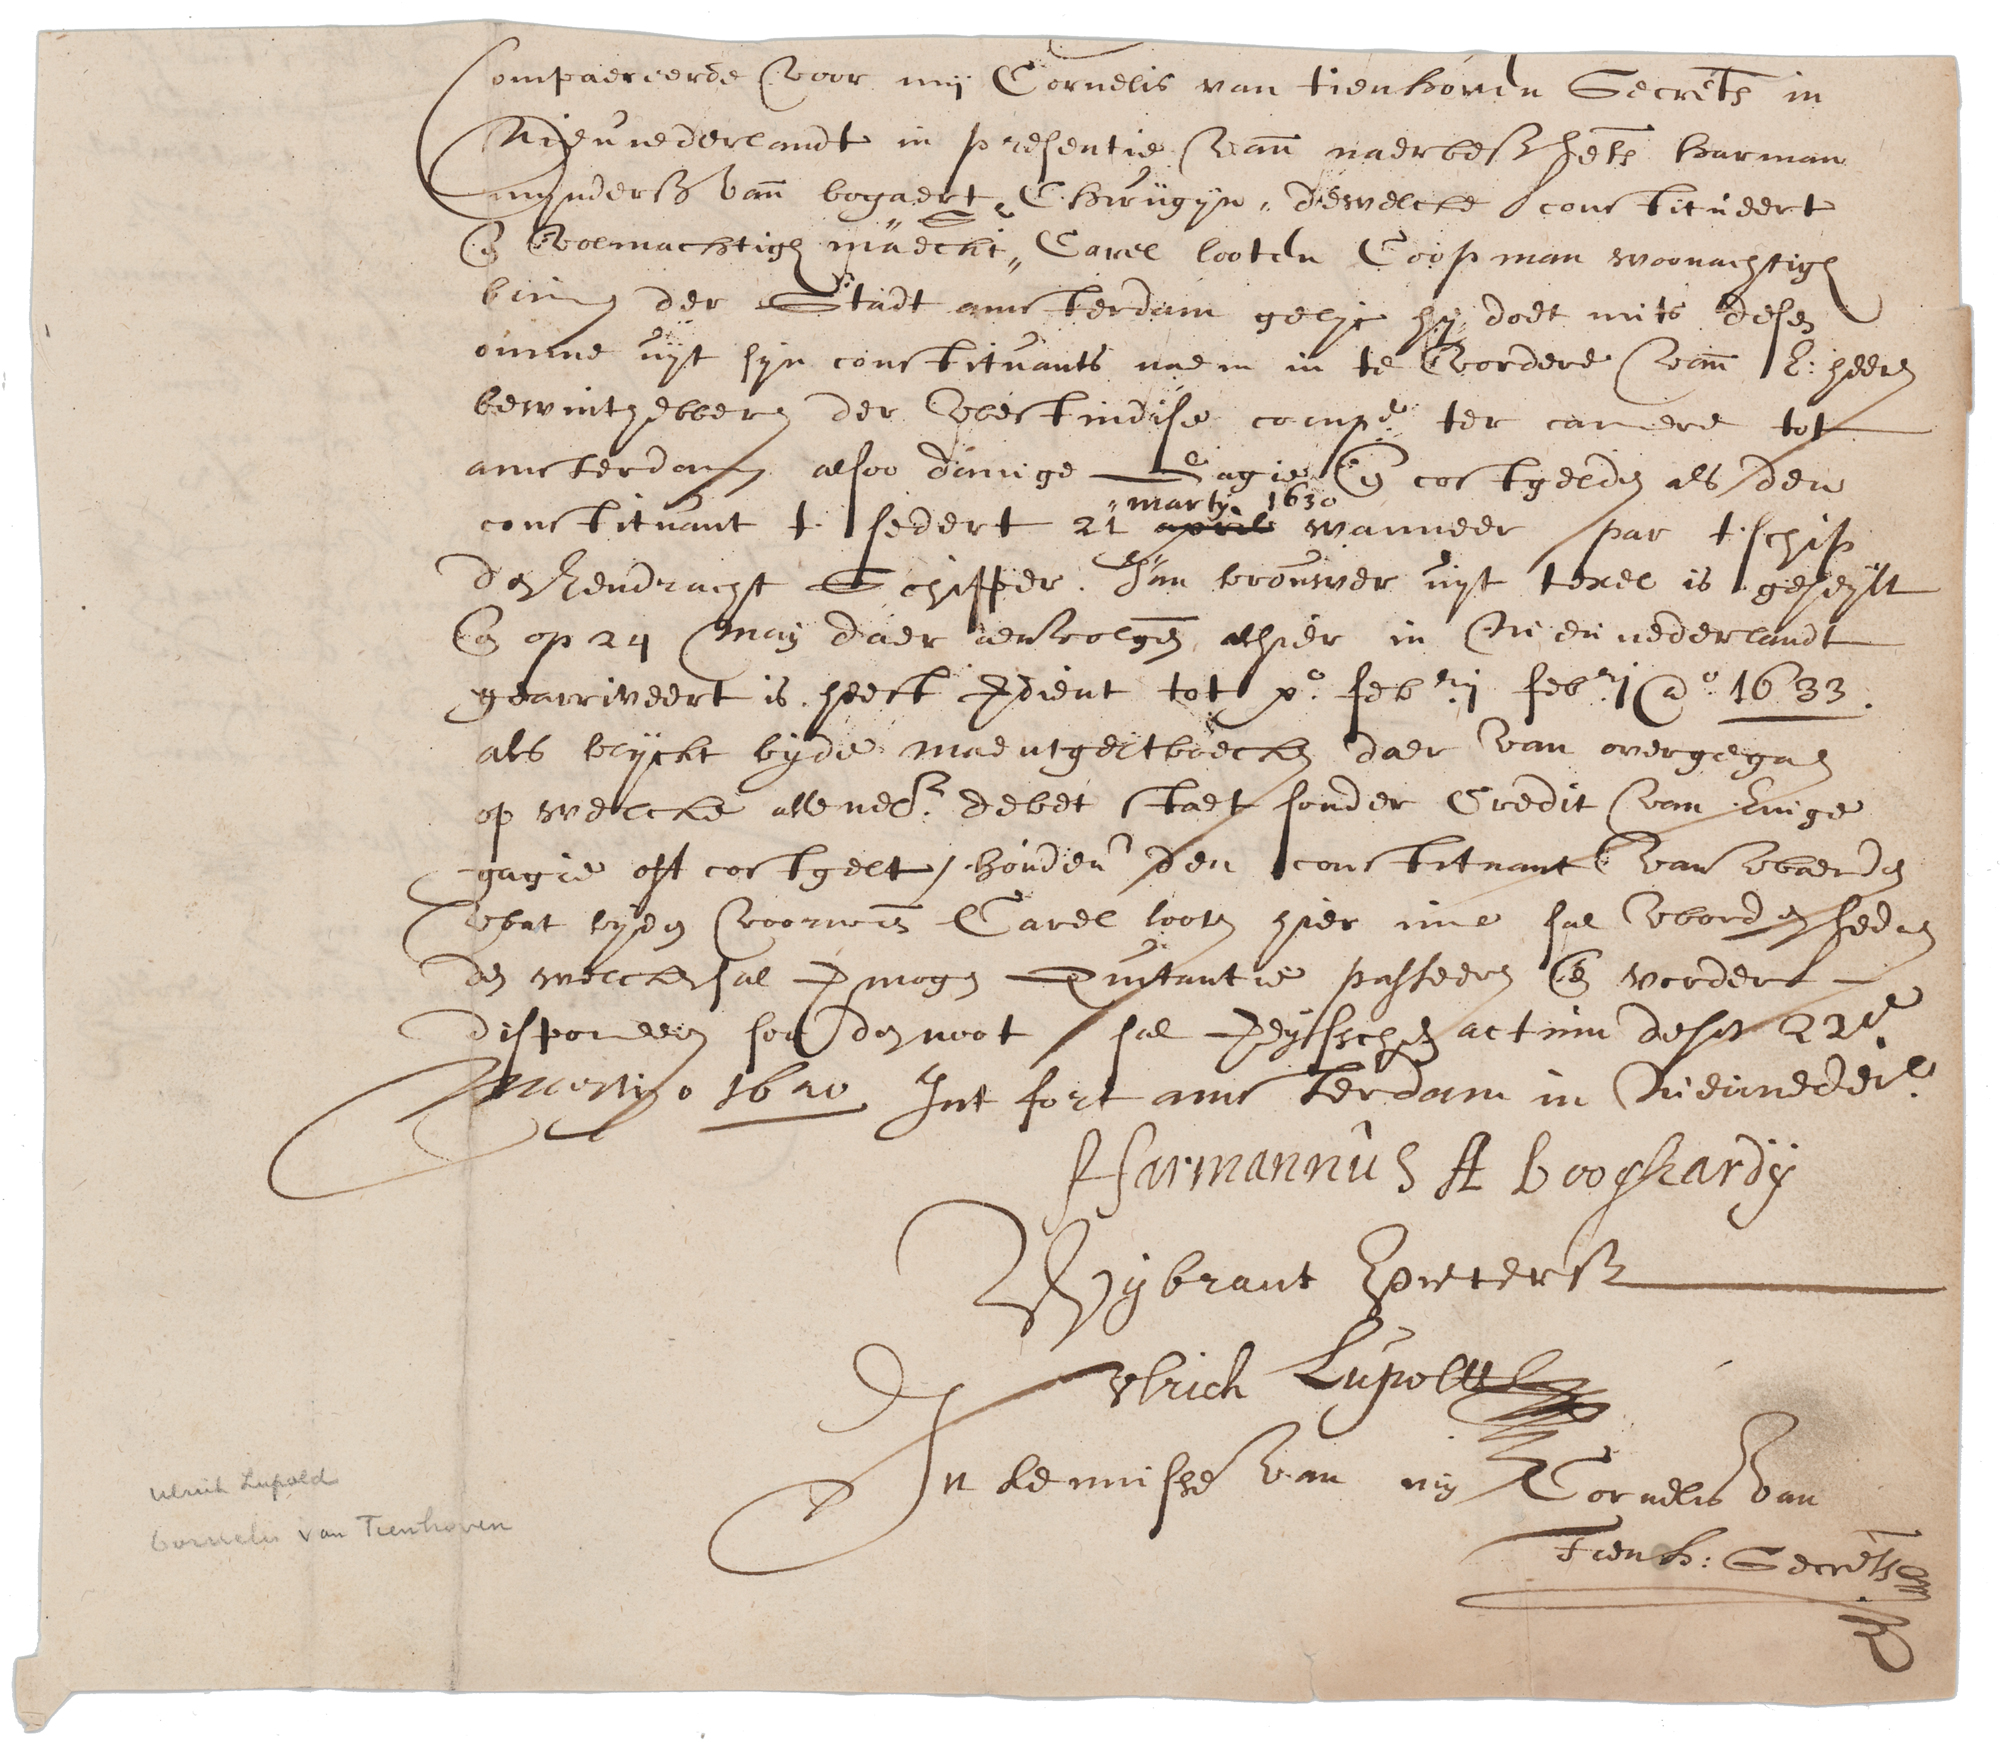 Compareerde voor mij Cornelis van tienhoven Secrets in
Nieunederlandt in presentie van naerbes hets Harman
mynderß van bogaert Chirurgyn, dewelcke constitueert
en volmachtigh maeckt Carel looten Coopman woonachtigh
binnen der Stadt amsterdam gelyc hy doet mits desen
omme uyt syn constituants naem in te vorderen van E: heeren
bewinthebberen der Westindise compe ter camere tot
amsterdam alsoo danige gagie en costgelden als den
constituant t sedert 21 marty 1630 wanneer par t schip
de Eendracht Schipper Jan brouwer uyt texel is geseylt
en op 24 May daer aenvolgen alhier in Nieunederlandt
gearriveert is heeft gedient tot po febrij febrij ao 1633.
als blyckt byde maentgeltboecken daer van overgegaen
op welcke alleenel. debet staet sonder Credit van Enige
gagie oft costgelt / houden den constituant van waerden
wat byden voorn Carel looten hier inne sal worden
den welcken sal mogen Quitantie passeeren en vorder
disponeeren soo den noot sal actum desen 22e
Martio 1640 Int fort amsterdam in Nieunederl.
Harmannus A booghardij
Wybrant pieterß
Vlrich Lupoldt
In kennisse van mij Cornelis van
Tienh: Secrets
Ulrich Lupold
Cornelis van Tienhoven